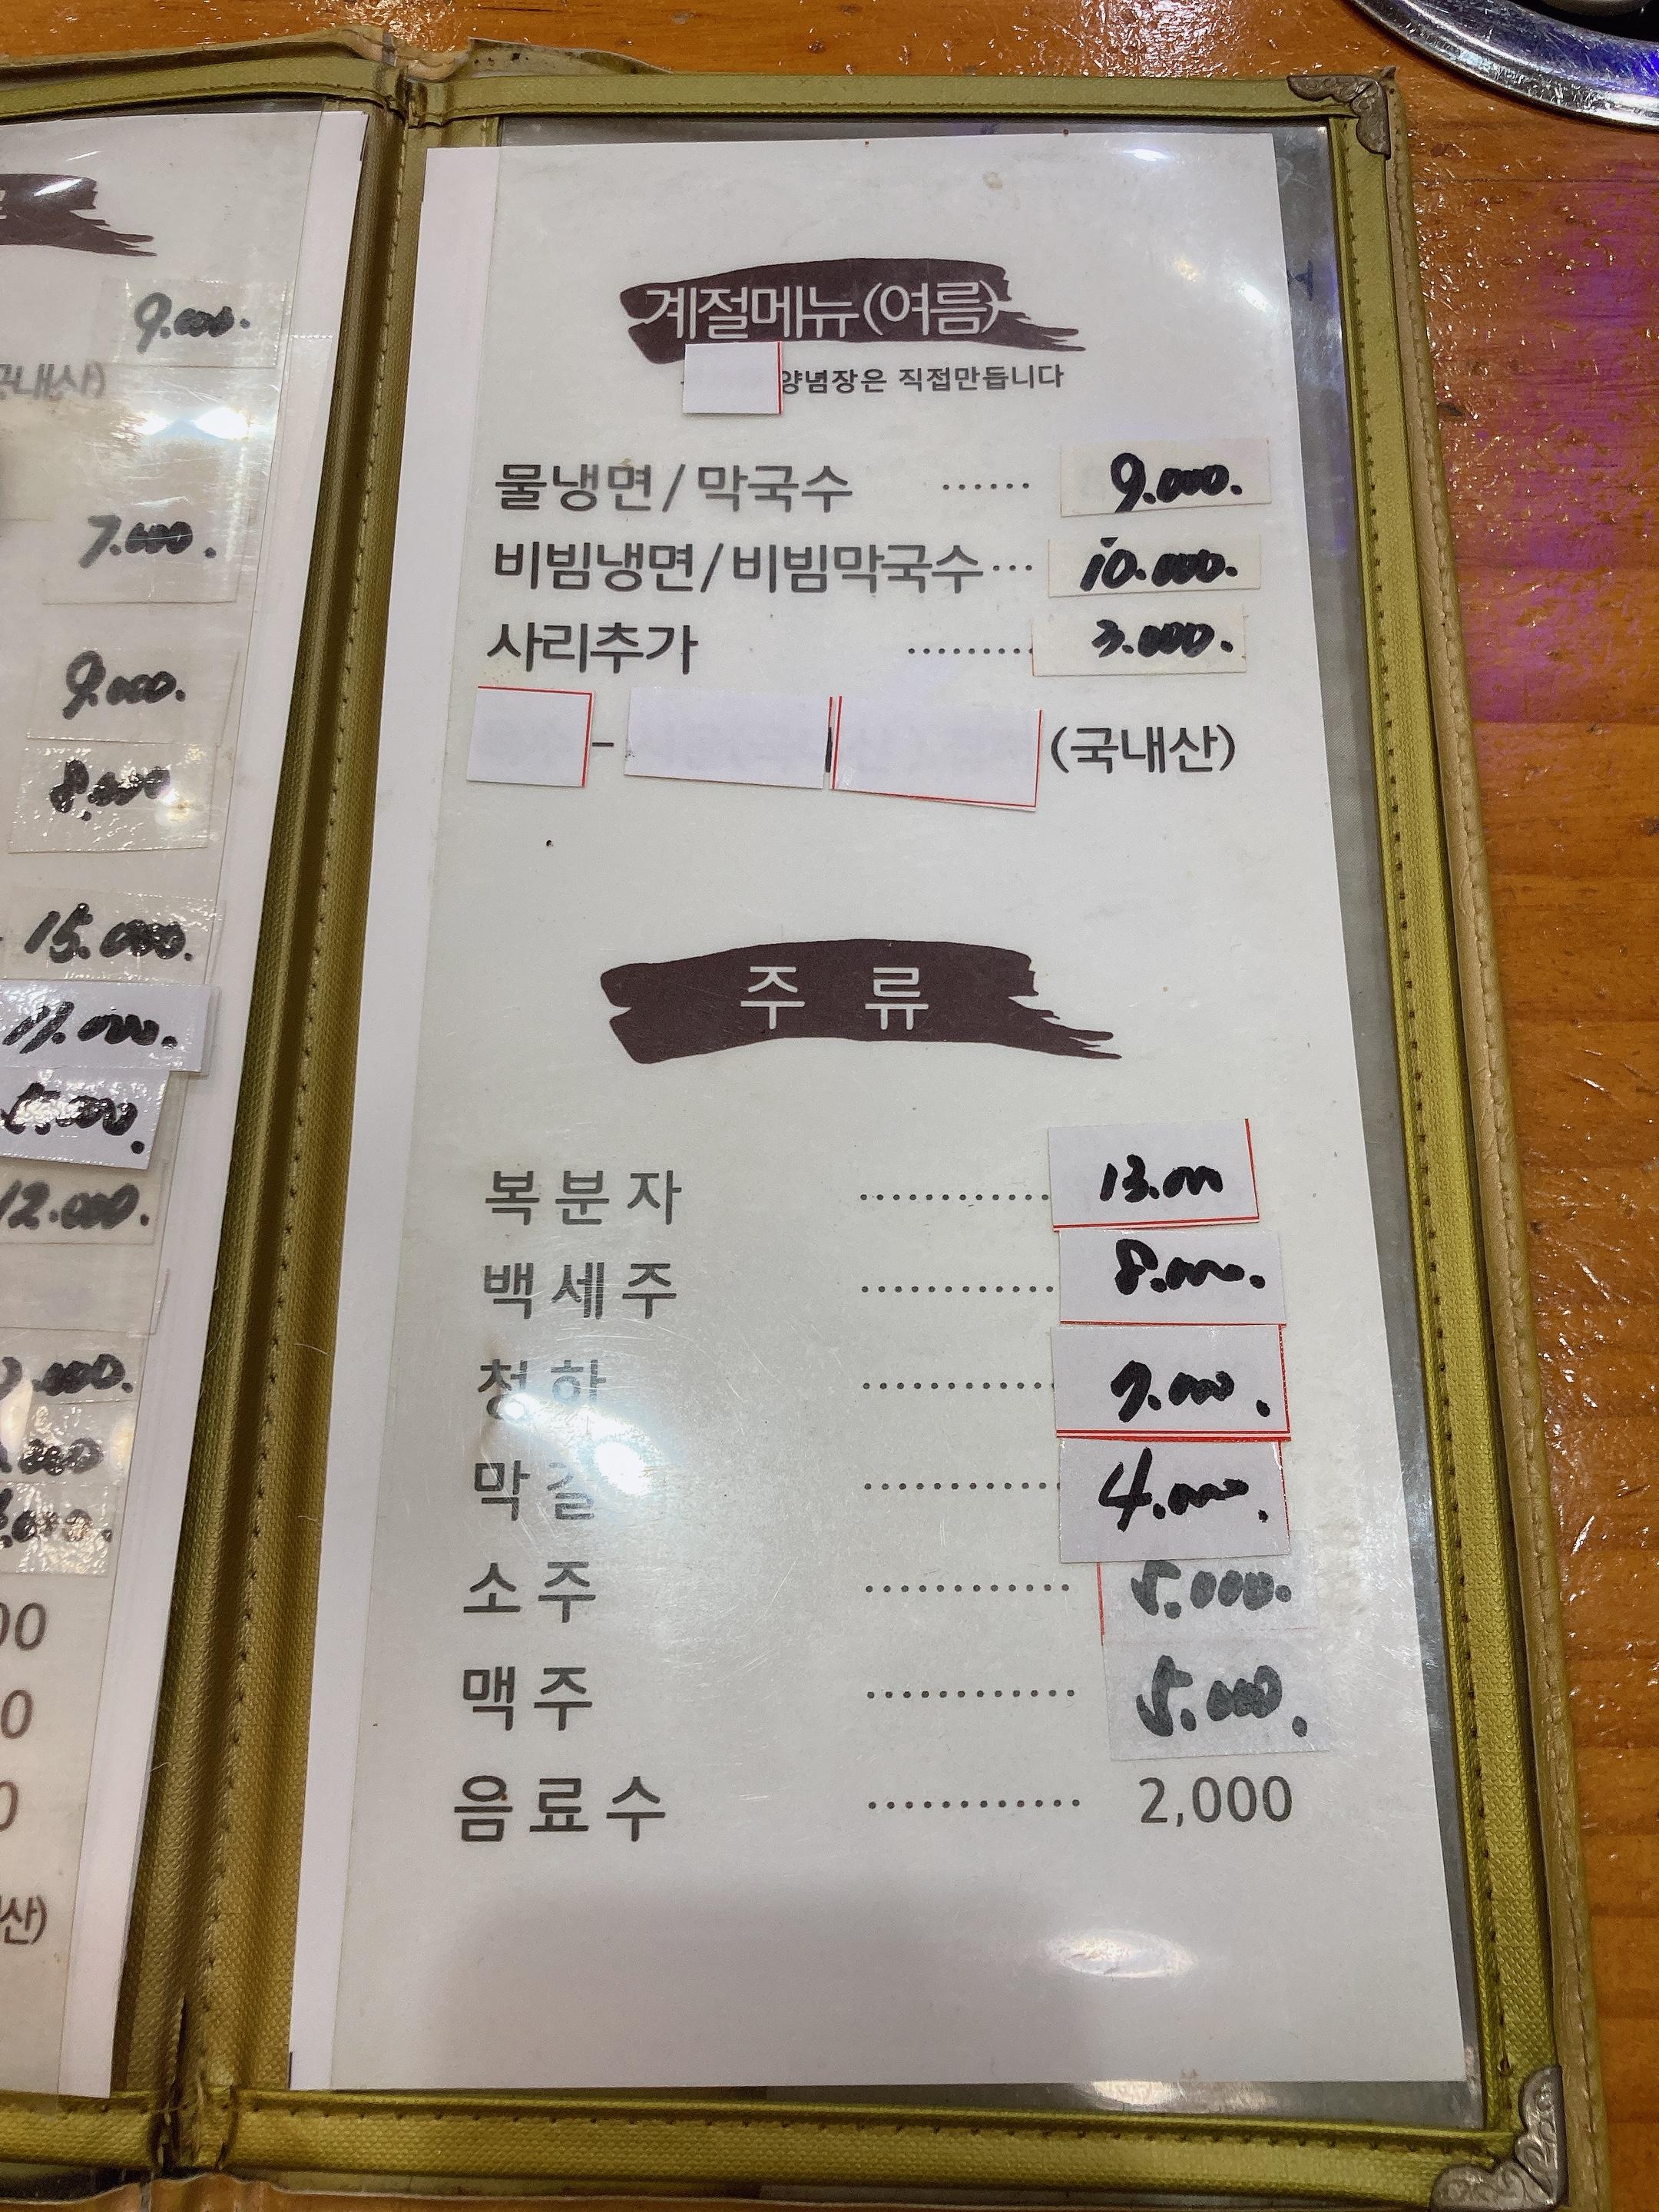 9.000.
국내산)
7.000.
9.000.
8.000
15.000.
11.000.
5.000.
12.000.
.000.
.000
.000.
00
0
0
산)
계절메뉴(여름)
양념장은 직접만듭니다
물냉면/막국수 ...... 9.000.
비빔냉면/비빔막국수... 10.000.
사리추가 ......... 3.000.
- (국내산)
주 류
복분자 ............ 13.000
백세주 ............ 8.000.
청하 ............ 7.000.
막걸 ............ 4.000.
소주 ............ 5.000.
맥주 ............ 5.000.
음료수 ............ 2,000